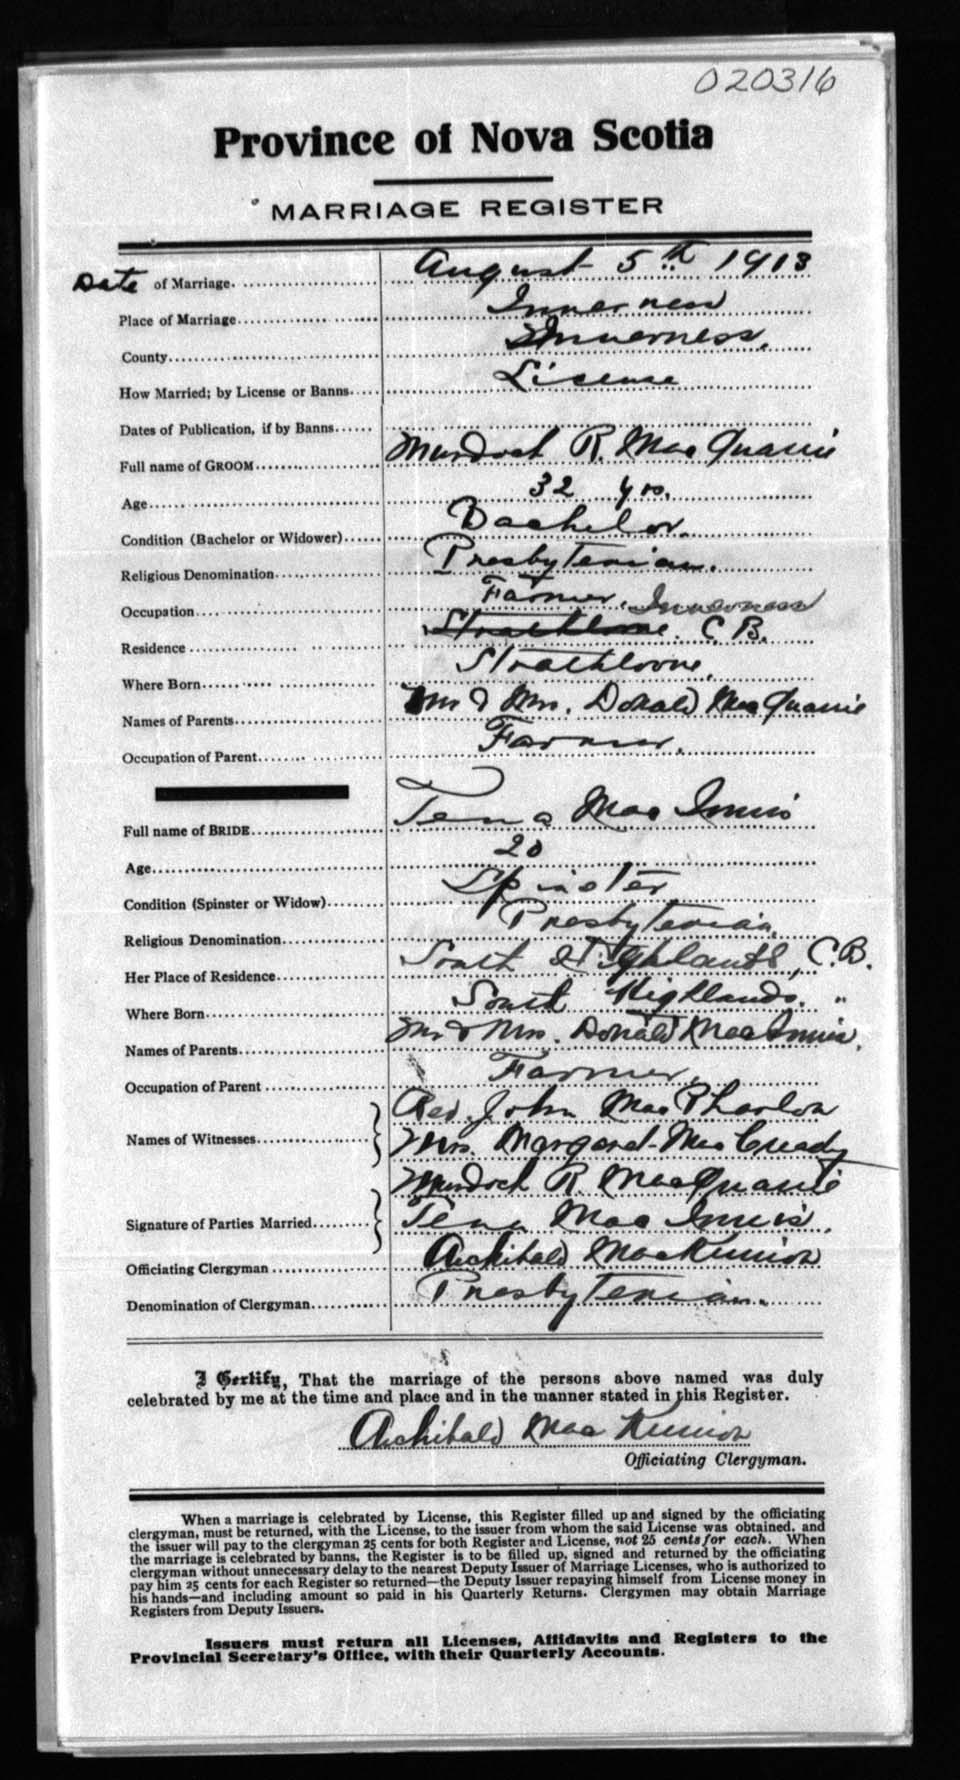 020316
Province of Nova Scotia
MARRIAGE REGISTER
Date of Marriage August 5th 1913
Place of Marriage Inverness
County Inverness.
How Married; by License or Banns Lisense
Dates of Publication, if by Banns
Full name of GROOM Murdoch R. MacQuarrie
Age 32 yrs.
Condition (Bachelor or Widower) Bachelor.
Religious Denomination Presbyterian.
Occupation Farmer.
Residence Strathlorne. Inverness C.B.
Where Born Strathlorne.
Names of Parents Mr & Mrs. Donald MacQuarrie
Occupation of Parent Farmer.
Full name of BRIDE Tena MacInnis
Age 20
Condition (Spinster or Widow) Spinster
Religious Denomination Presbyterian.
Her Place of Residence South Highlands, C.B.
Where Born South Highlands. "
Names of Parents Mr & Mrs. Donald MacInnis.
Occupation of Parent Farmer.
Names of Witnesses Rev. John Mac
Mrs. Margaret MacCready
Signature of Parties Married Murdoch R. MacQuarrie
Tena MacInnis.
Officiating Clergyman Archibald MacKinnon
Denomination of Clergyman Presbyterian.
I Certify, That the marriage of the persons above named was duly
celebrated by me at the time and place and in the manner stated in this Register.
Archibald MacKinnon
Officiating Clergyman.
When a marriage is celebrated by License, this Register filled up and signed by the officiating
clergyman, must be returned, with the License, to the issuer from whom the said License was obtained, and
the issuer will pay to the clergyman 25 cents for both Register and License, not 25 cents for each. When
the marriage is celebrated by banns, the Register is to be filled up, signed and returned by the officiating
clergyman without unnecessary delay to the nearest Deputy Issuer of Marriage Licenses, who is authorized to
pay him 25 cents for each Register so returned—the Deputy Issuer repaying himself from License money in
his hands—and including amount so paid in his Quarterly Returns. Clergymen may obtain Marriage
Registers from Deputy Issuers.
Issuers must return all Licenses, Affidavits and Registers to the
Provincial Secretary's Office, with their Quarterly Accounts.